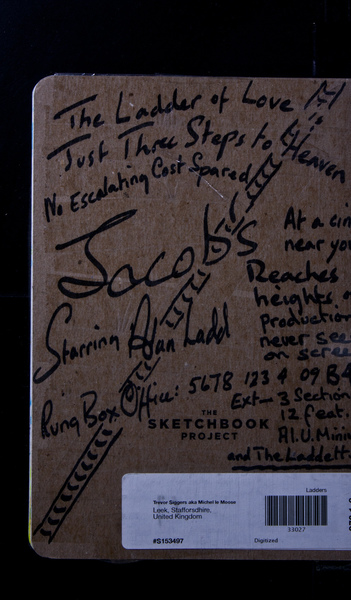 The Ladder of Love
is
Just Three Steps to Heaven
No Escalating Cost Spared!!
Jacob's
At a cin
near you
Reaches
heights o
production
never see
on scree
Starring Alan Ladd
Rung Box Office: 5678 123 4 09 B4
Ext- 3 Section
12 feat.
Al.U.Mini
and The Laddett
THE
SKETCHBOOK
PROJECT
Ladders
Trevor Siggers aka Michel le Misose
Leek, Stafforsdhire,
United Kingdom
33027
#S153497
Digitized